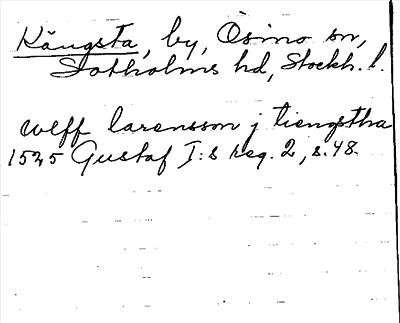 Kängsta, by, Ösmo sn,
Sotholms hd, Stockh. l.
Weff larensson j tiengstha
1525 Gustaf I:s reg. 2, s. 48.